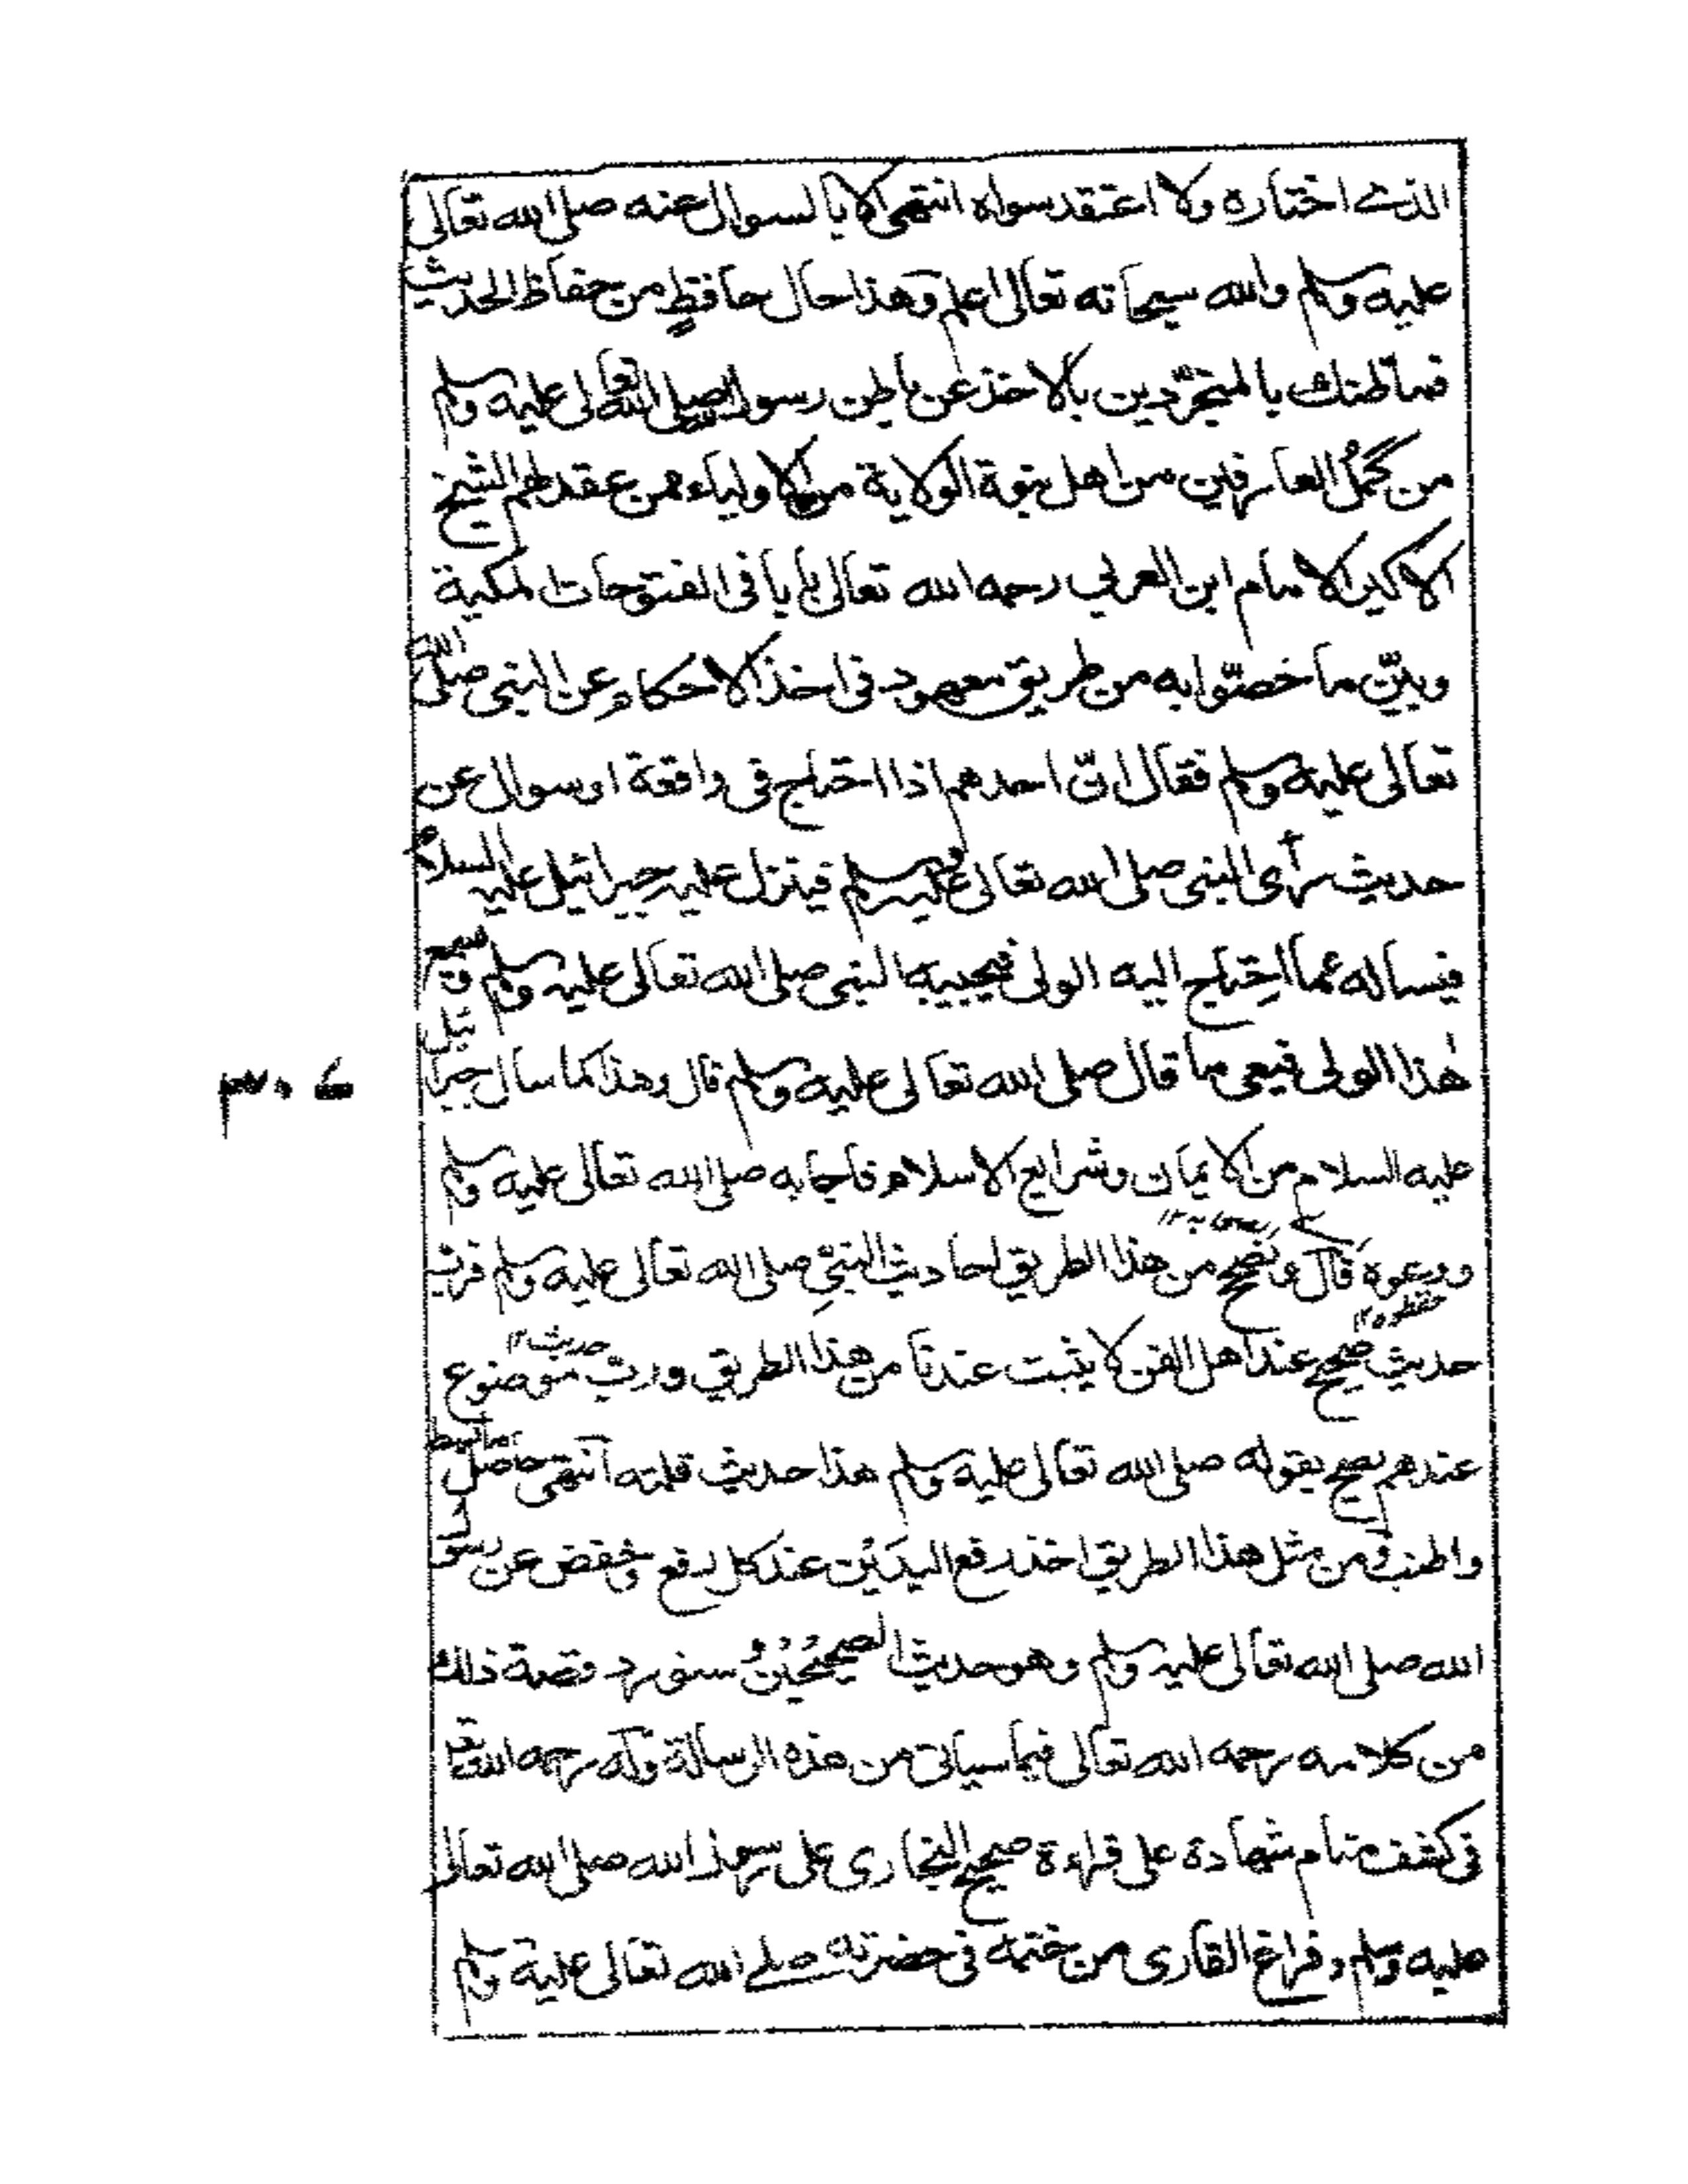 الذے اختاره ولا اعتقد سواه انتهى الا بالسوال عنه صلى الله تعالى
عليه وسلم والله سبحانه تعالى اعلم وهذا حال حافظٍ من حفاظ الحديث
فما ظنك بالمتجرّدين بالاخذ عن باطن رسول الله صلى الله تعالى عليه وسلم
من كُمّل العارفين من اهل نبوة الولاية من الاولياء ممن عقد لهم الشيخ
الاكبر الامام ابن العربي رحمه الله تعالى بابا فى الفتوحات المكية
وبيّن ما خصّوا به من طريق معهود فى اخذ الاحكام عن النبى صلى الله
تعالى عليه وسلم فقال انّ احدهم اذا احتاج فى واقعة او سوال عن
حديث رأى النبى صلى الله تعالى عليه وسلم فينزل عليه جبرائيل عليه السلام
فيساله عما احتاج اليه الولى فيجيبه النبى صلى الله تعالى عليه وسلم وسمع
هٰذا الولى فيعى ما قال صلى الله تعالى عليه وسلم قال وهذا كما سأل جبرائيل
عليه السلام من الايمان وشرايع الاسلام فاجابه صلى الله تعالى عليه وسلم
ووعوه قال ونصحح من هذا الطريق احاديث النبىّ صلى الله تعالى عليه وسلم فربّ
حفظوه ١٢
حديث صحيح عند اهل الفن لا يثبت عندنا من هذا الطريق وربّ موضوع
حديث ١٢
عندهم يصح بقوله صلى الله تعالى عليه وسلم هذا حديث قلته انتهى حاصل ما بسط
واطنب ومن مثل هذا الطريق اخذ رفع اليدَيْن عند كل رفع وخفض عن رسول
الله صلى الله تعالى عليه وسلم وهو حديث الصحيحَيْن وسنورد قصة ذلك
من كلامه رحمه الله تعالى فيما سياتى من هذه الرسالة وله رحمه الله تعالى
فى كشف منام شهادة على قراءة صحيح البخارى على رسول الله صلى الله تعالى
عليه وسلم وفراغ القارى من ختمه فى حضرته صلے الله تعالى عليه وسلم